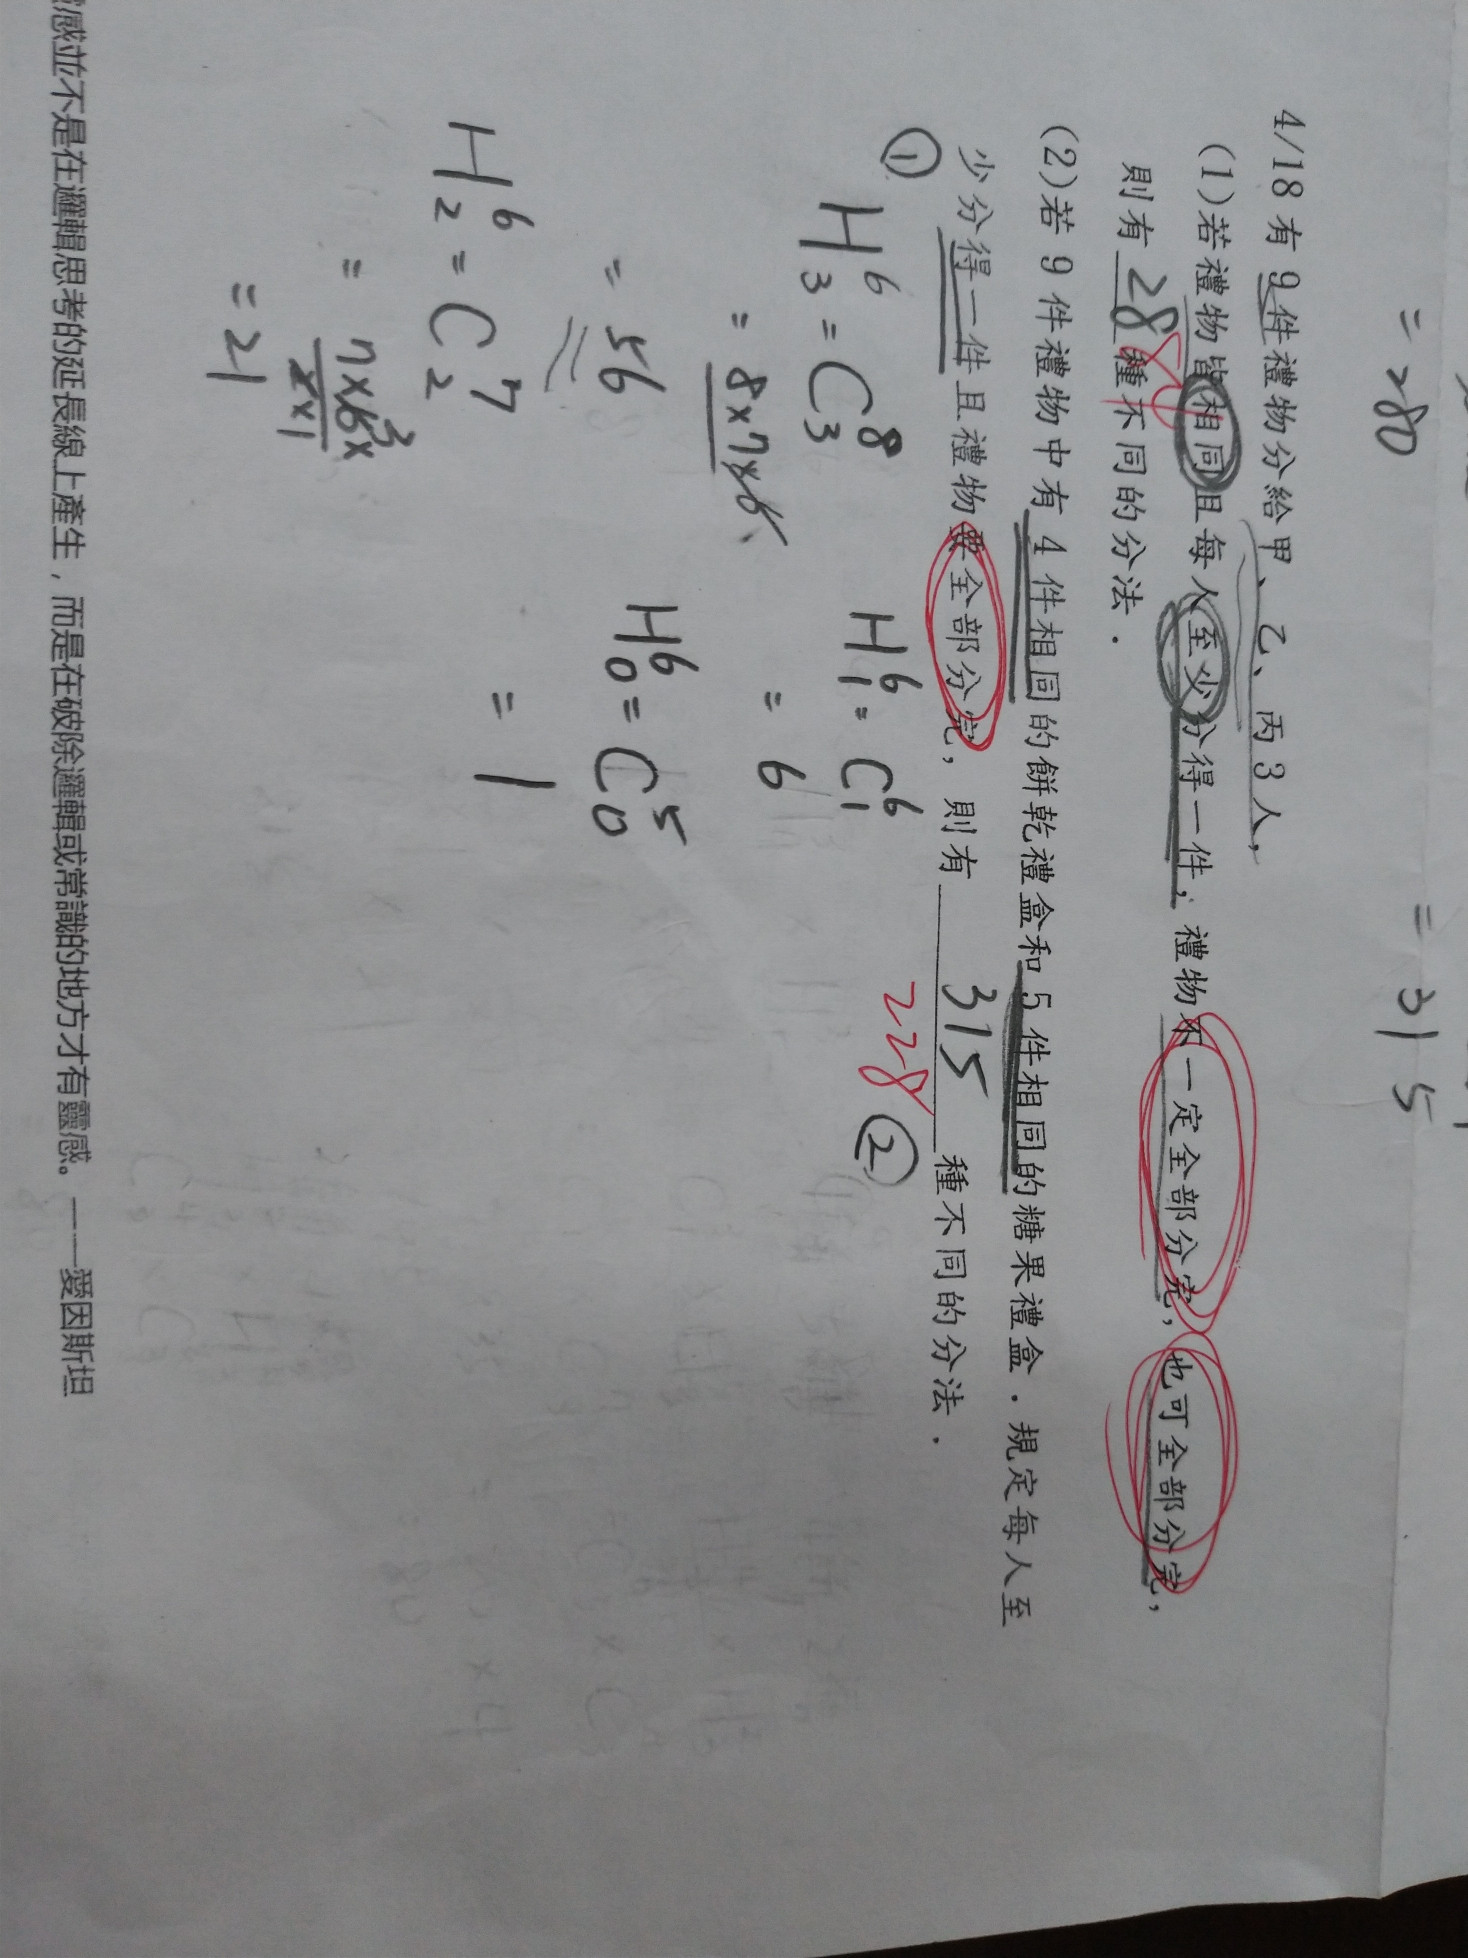 = 280
= 315
4/18 有 9 件禮物分給甲、乙、丙 3 人,
(1)若禮物皆相同且每人至少分得一件;禮物不一定全部分完,也可全部分完,
則有 28 種不同的分法.
(2)若 9 件禮物中有 4 件相同的餅乾禮盒和 5 件相同的糖果禮盒.規定每人至
少分得一件且禮物要全部分完,則有 315 種不同的分法.
228
①
②
H⁶₃ = C⁸₃
= 8×7×6
= 56
H⁶₂ = C⁷₂
= 7×6³×
2×1
= 21
H⁶₁ = C⁶₁
= 6
H⁶₀ = C⁵₀
= 1
感並不是在邏輯思考的延長線上產生,而是在破除邏輯或常識的地方才有靈感。——愛因斯坦